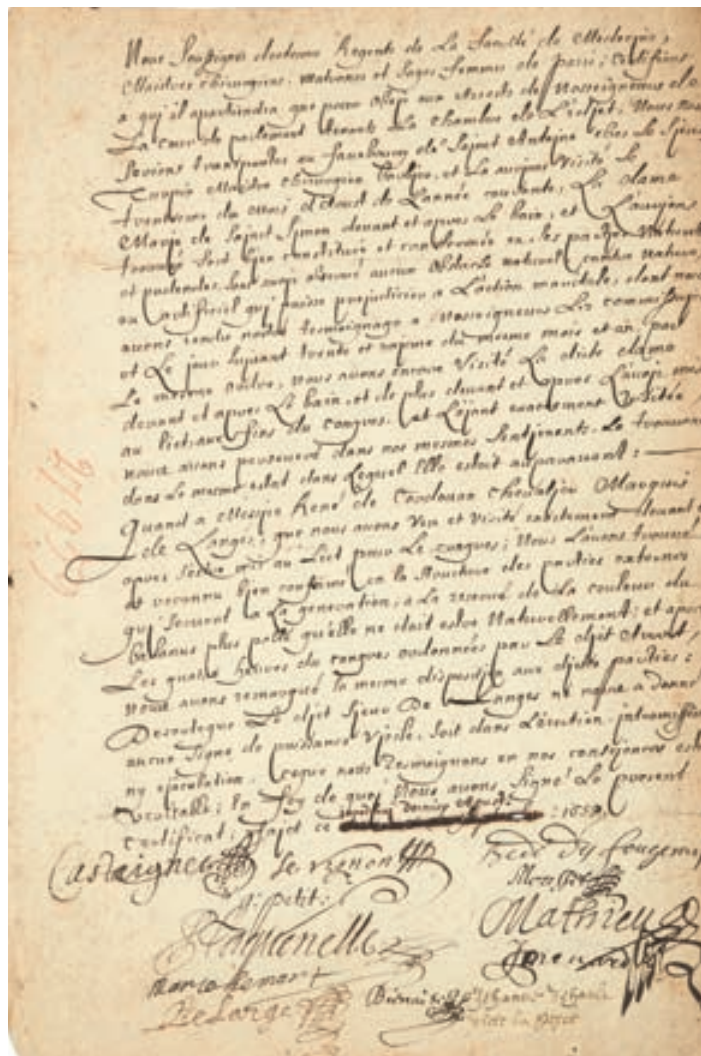 Nous soussignes docteurs Regents de La faculté de Medecine,
Maistres chirurgiens, matrones et sages femmes de paris; Certifions
a qui il apartiendra que pour obeir aux Arrests de Nosseigneurs de
La cour de parlement donnés en La chambre de L'edict; Nous nous
serions transportes au fauxbourg de saint Antoine chez le sieur
Maistre chirurgien et La aurions visité le
du mois d'Aoust de L'année courante; La dame
Marie de saint simon devant et apres Le bain, et L'aurions
trouvée fort bien constituée et conformée en ses parties Naturelles
et sans avoir observé aucun obstacle naturel, contre nature,
ou artificiel qui puisse prejudicier a L'action maritale, dont nous
avons rendu nostre tesmoignage a Nosseigneurs Les commissaires
et Le jour suyvant trente et uniesme du mesme mois et an, par
Le mesme ordre, nous avons encore visité La dicte dame
devant et apres Le bain, et de plus devant et apres L'avoir mise
au lict, aux fins du congres. et L'ayant exactement visitée,
nous avons perseveré dans nos mesmes sentiments. La trouvant
dans Le mesme estat dans Lequel Elle estoit auparavant:
Quand a Messire René de Cordouan chevalier Marquis
de Langes; que nous avons veu et visité exactement devant et
apres s'estre mis au Lict pour Le congres; Nous L'avons trouvé
et reconnu bien conformé en la structure des parties externes
qui servent a La generation, a La reserve de La couleur du
balanus plus pasle qu'elle ne doit estre Naturellement; et apres
Les quatre heures du congres ordonnées par Le dict Arrest,
nous avons remarqué la mesme disposition aux dictes parties:
Desorteque Le dict sieur De Langes ne nous a donné
aucun signe de puissance virile, soit dans L'erection, intromission
ny ejaculation. Ceque nous tesmoignons en nos consciences estre
veritable; En foy de quoy Nous avons signé Le present
certificat; fait ce dernier Aoust 1658.
le vignon
petit
Mathieu
De Large